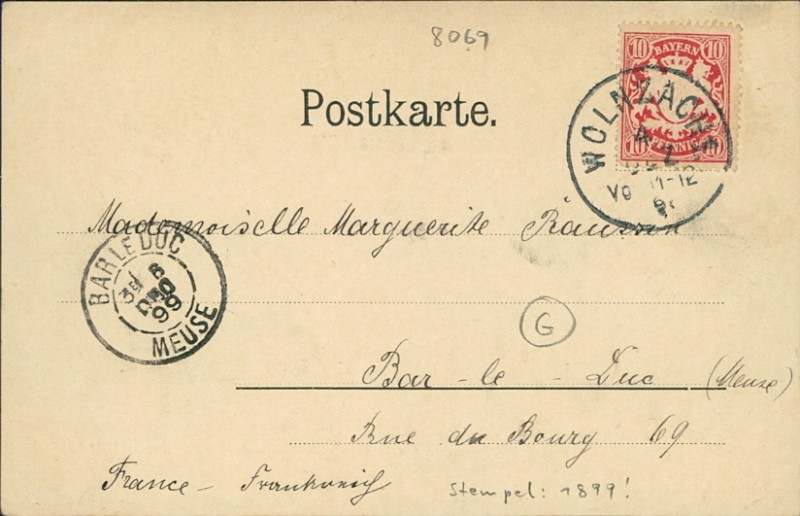 8069
10 BAYERN 10
10 PFENNIG 10
Postkarte.
WOLNZACH
VO 11-12
Mademoiselle Marguerite
BAR LE DUC
3E
99
MEUSE
G
Bar-le-Duc (Meuse)
Rue du Bourg 69
France - Frankreich
Stempel: 1899!